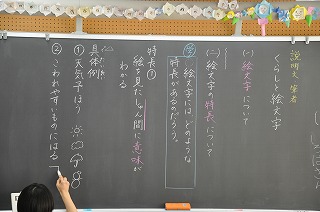 説明文 筆者
くらしと絵文字
(一) 絵文字について
(二) 絵文字の特長について
絵文字には、どのような
特長があるのだろう。
特長①
絵を見たしゅん間に意味が
わかる
具体例
① 天気予ほう
② こわれやすいものにはる